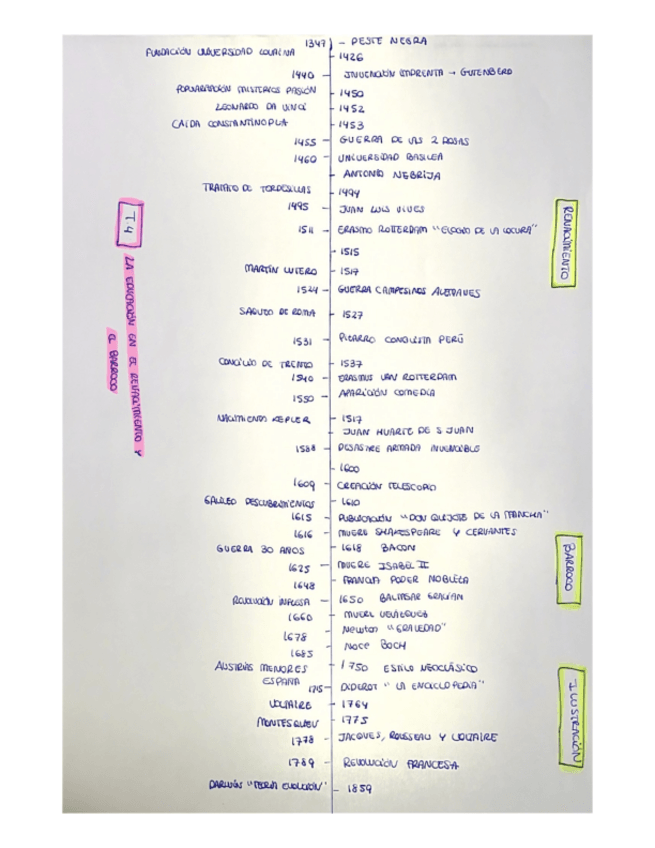 1347 - PESTE NEGRA
FUNDACIÓN UNIVERSIDAD LOVAINA - 1426
1440 - INVENCIÓN IMPRENTA → GUTENBERG
POPULARIZACIÓN MISTERIOS PASIÓN - 1450
LEONARDO DA VINCI - 1452
CAÍDA CONSTANTINOPLA - 1453
1455 - GUERRA DE LAS 2 ROSAS
1460 - UNIVERSIDAD BASILEA
- ANTONIO NEBRIJA
TRATATO DE TORDESILLAS - 1494
1495 - JUAN LUIS VIVES
1511 - ERASMO ROTTERDAM "ELOGIO DE LA LOCURA"
- 1515
MARTÍN LUTERO - 1517
1524 - GUERRA CAMPESINOS ALEMANES
SAQUEO DE ROMA - 1527
1531 - PIZARRO CONQUISTA PERÚ
CONCILIO DE TRENTO - 1537
1540 - ERASMUS VAN ROTTERDAM
1550 - APARICIÓN COMEDIA
NACIMIENTO KEPLER - 1517
- JUAN HUARTE DE S JUAN
1588 - DESASTRE ARMADA INVENCIBLE
- 1600
1609 - CREACIÓN TELESCOPIO
GALILEO DESCUBRIMIENTOS - 1610
1615 - PUBLICACIÓN "DON QUIJOTE DE LA MANCHA"
1616 - MUERE SHAKESPEARE Y CERVANTES
GUERRA 30 AÑOS - 1618 BACON
1625 - MUERE ISABEL II
1648 - FRANCIA PODER NOBLEZA
REVOLUCIÓN INGLESA - 1650 BALTASAR GRACIÁN
1660 - MUERE VELÁZQUEZ
1678 - Newton "GRAVEDAD"
1685 - Nace BACH
AUSTRIAS MENORES ESPAÑA - 1750 ESTILO NEOCLÁSICO
1715 - DIDEROT "LA ENCICLOPEDIA"
VOLTAIRE - 1764
MONTESQUIEU - 1775
1778 - JACQUES, ROUSSEAU Y VOLTAIRE
1789 - REVOLUCIÓN FRANCESA
DARWIN "TEORÍA EVOLUCIÓN" - 1859
T4
LA EDUCACIÓN EN EL RENACIMIENTO Y
EL BARROCO
RENACIMIENTO
BARROCO
ILUSTRACIÓN